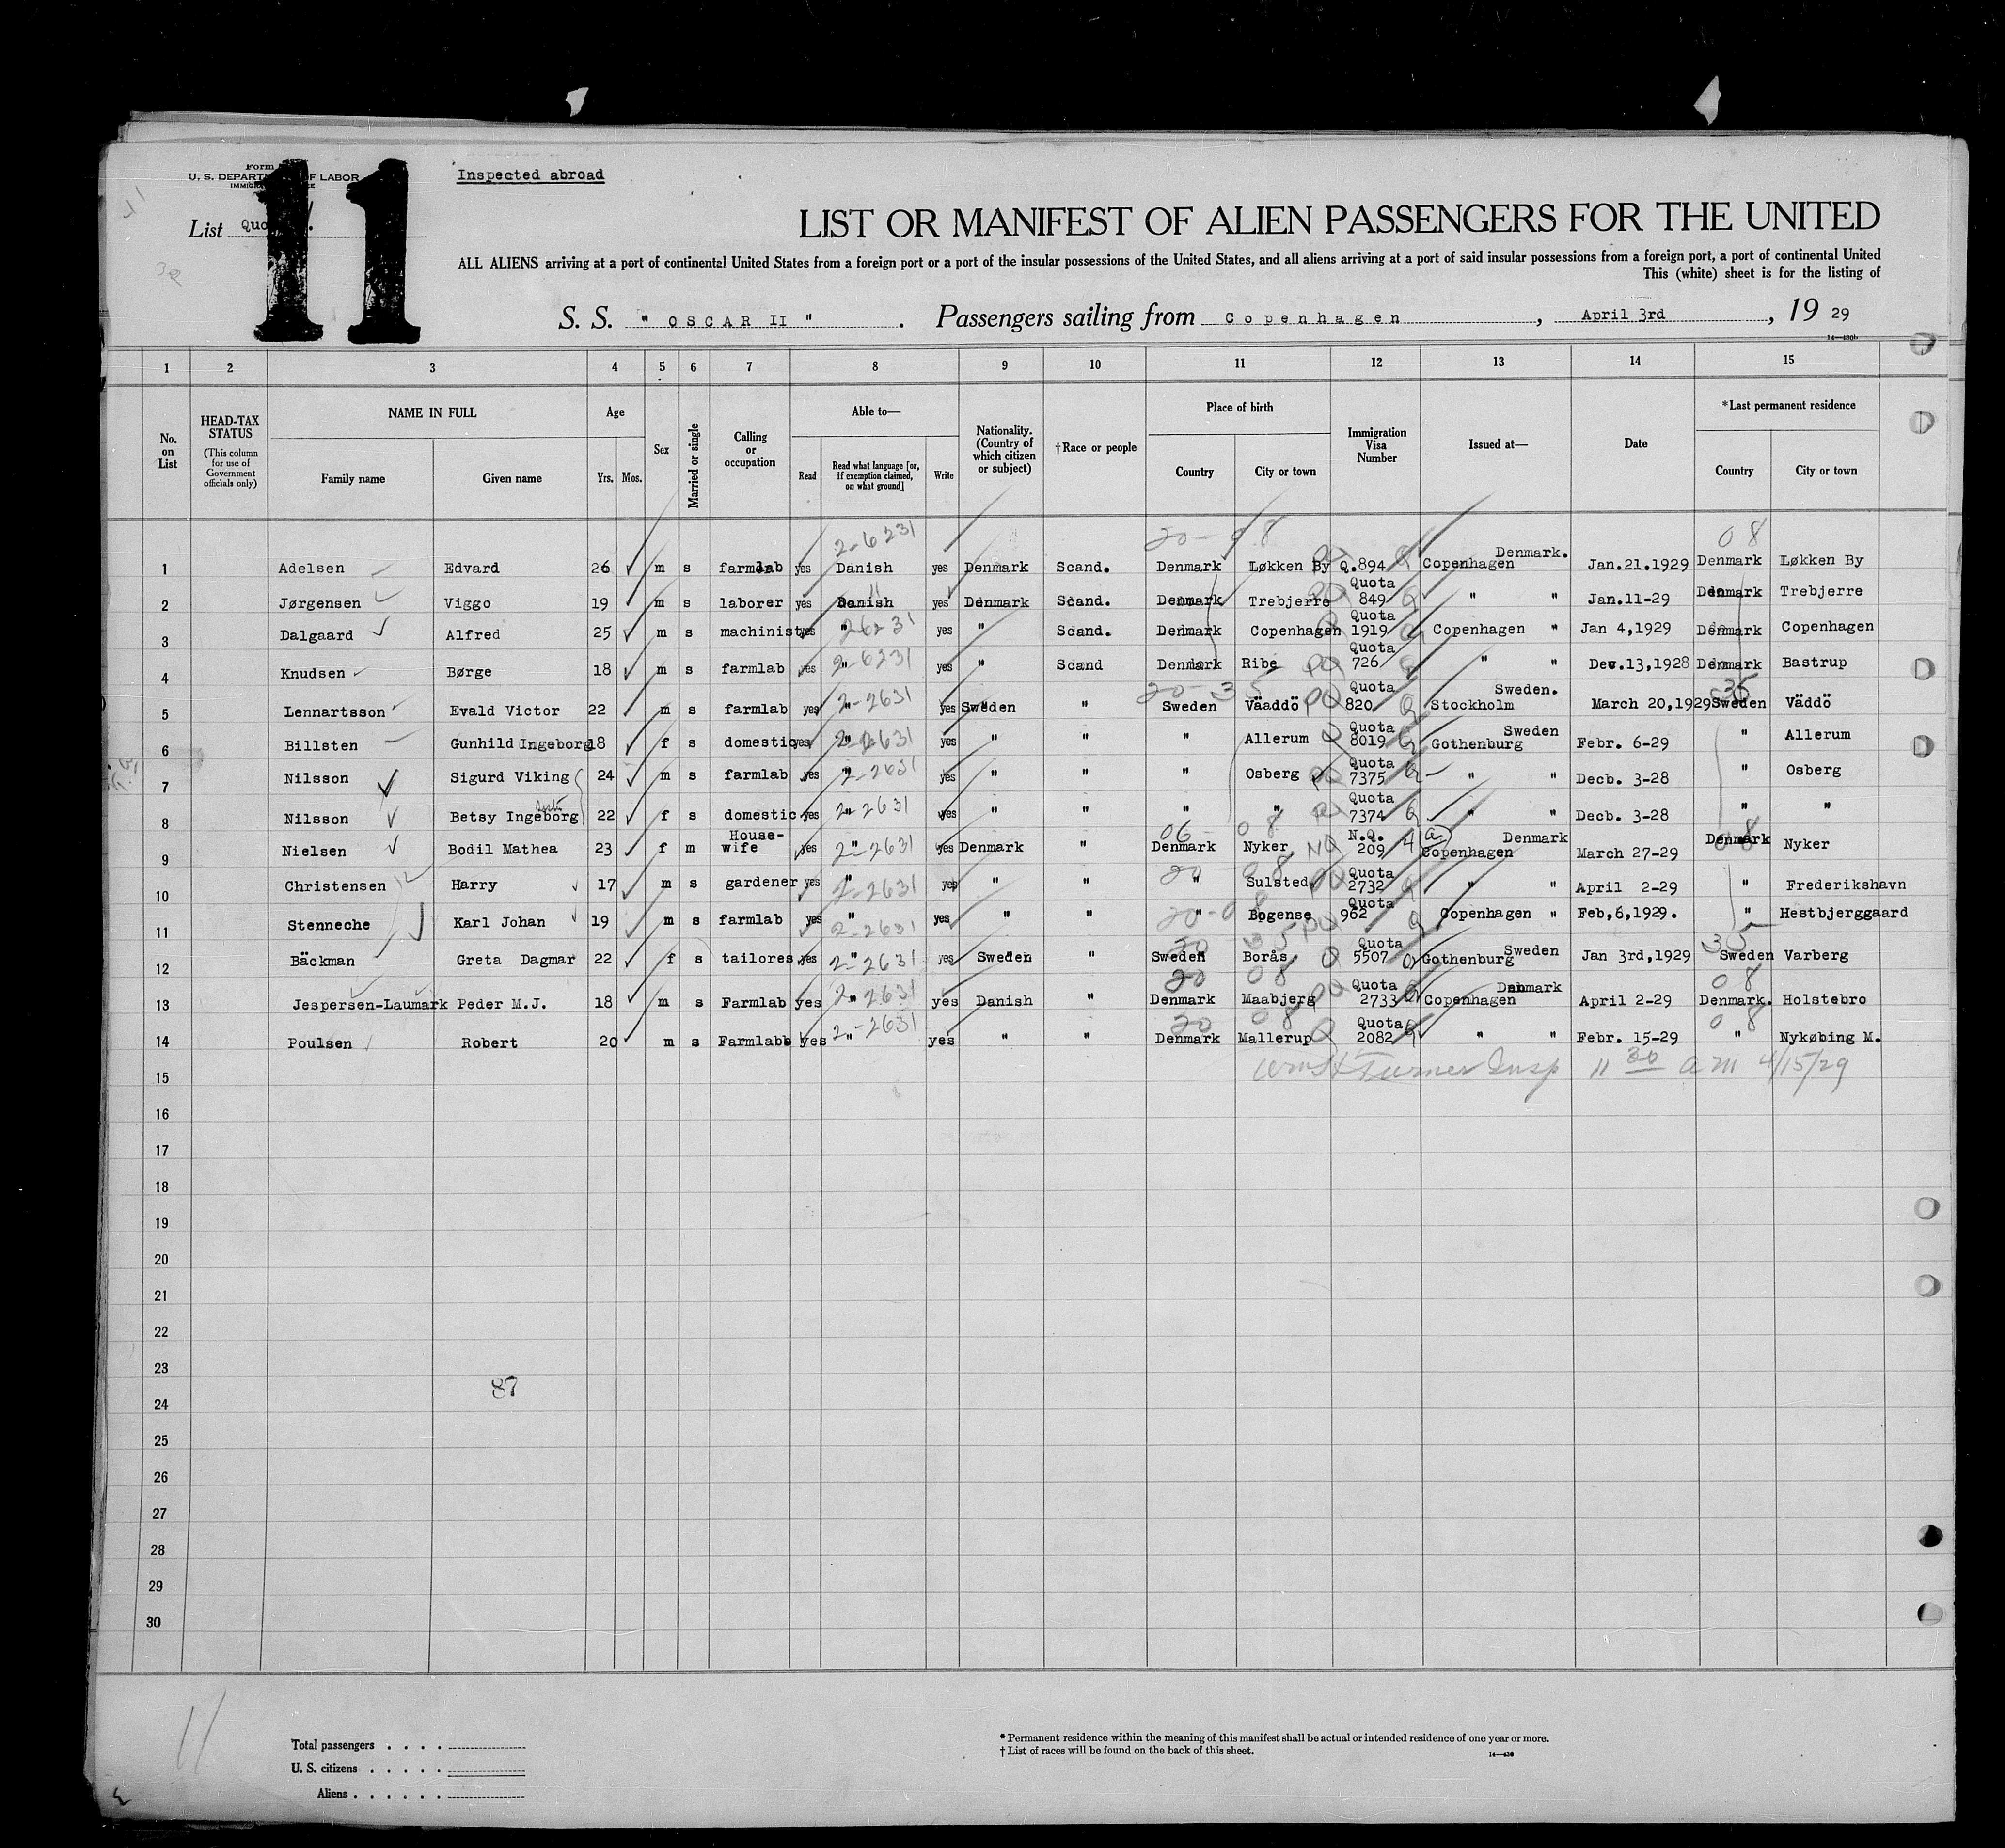 Form
U. S. DEPARTMENT OF LABOR
Inspected abroad
11
List
LIST OR MANIFEST OF ALIEN PASSENGERS FOR THE UNITED
ALL ALIENS arriving at a port of continental United States from a foreign port or a port of the insular possessions of the United States, and all aliens arriving at a port of said insular possessions from a foreign port, a port of continental United
This (white) sheet is for the listing of
S. S. " OSCAR II " . Passengers sailing from Copenhagen , April 3rd , 19 29
1 2 3 4 5 6 7 8 9 10 11 12 13 14 15
No. on List
HEAD-TAX STATUS (This column for use of Government officials only)
NAME IN FULL Family name Given name
Age Yrs. Mos.
Sex
Married or single
Calling or occupation
Able to— Read Read what language [or, if exemption claimed, on what ground] Write
Nationality. (Country of which citizen or subject)
†Race or people
Place of birth Country City or town
Immigration Visa Number
Issued at—
Date
*Last permanent residence Country City or town
2-6231 20-08 08
1 Adelsen Edvard 26 m s farmlab yes Danish yes Denmark Scand. Denmark Løkken By Q.894 Copenhagen Denmark. Jan.21.1929 Denmark Løkken By
2 Jørgensen Viggo 19 m s laborer yes Danish yes Denmark Scand. Denmark Trebjerre Quota 849 " " Jan.11-29 Denmark Trebjerre
3 Dalgaard Alfred 25 m s machinist yes " 26231 yes " Scand. Denmark Copenhagen Quota 1919 Copenhagen " Jan 4,1929 Denmark Copenhagen
4 Knudsen Børge 18 m s farmlab yes " 2-6231 yes " Scand Denmark Ribe Quota 726 " " Dec.13,1928 Denmark Bastrup
20-35 35
5 Lennartsson Evald Victor 22 m s farmlab yes " 2-2631 yes Sweden " Sweden Väaddö Quota 820 Stockholm Sweden. March 20,1929 Sweden Väddö
6 Billsten Gunhild Ingeborg 18 f s domestic yes " 2-2631 yes " " " Allerum Quota 8019 Gothenburg Sweden Febr. 6-29 " Allerum
7 Nilsson Sigurd Viking 24 m s farmlab yes " 2-2631 yes " " " Osberg Quota 7375 " " Decb. 3-28 " Osberg
8 Nilsson Betsy Ingeborg 22 f s domestic yes " 2-2631 yes " " " " Quota 7374 " " Decb. 3-28 " "
06 08 08
9 Nielsen Bodil Mathea 23 f m House-wife yes " 2-2631 yes Denmark " Denmark Nyker NQ N.Q. 209 4(a) Copenhagen Denmark March 27-29 Denmark Nyker
20-08
10 Christensen Harry 17 m s gardener yes " 2-2631 yes " " " Sulsted Quota 2732 " " April 2-29 " Frederikshavn
20-08
11 Stenneche Karl Johan 19 m s farmlab yes " 2-2631 yes " " " Bogense Quota 962 Copenhagen " Feb,6,1929. " Hestbjerggaard
20 35 35
12 Bäckman Greta Dagmar 22 f s tailores yes " 2-2631 yes Sweden " Sweden Borås Quota 5507 Gothenburg Sweden Jan 3rd,1929 Sweden Varberg
20 08 08
13 Jespersen-Laumark Peder M.J. 18 m s Farmlab yes " 2-2631 yes Danish " Denmark Maabjerg Quota 2733 Copenhagen Denmark April 2-29 Denmark. Holstebro
20 08 08
14 Poulsen Robert 20 m s Farmlabb yes " 2-2631 yes " " Denmark Mallerup Quota 2082 " " Febr. 15-29 " Nykøbing M.
15 Turner Insp 11 30 am 4/15/29
16
17
18
19
20
21
22
23
87
24
25
26
27
28
29
30
11
Total passengers . . . .
U. S. citizens . . . . .
Aliens . . . . . .
* Permanent residence within the meaning of this manifest shall be actual or intended residence of one year or more.
† List of races will be found on the back of this sheet.
14—430